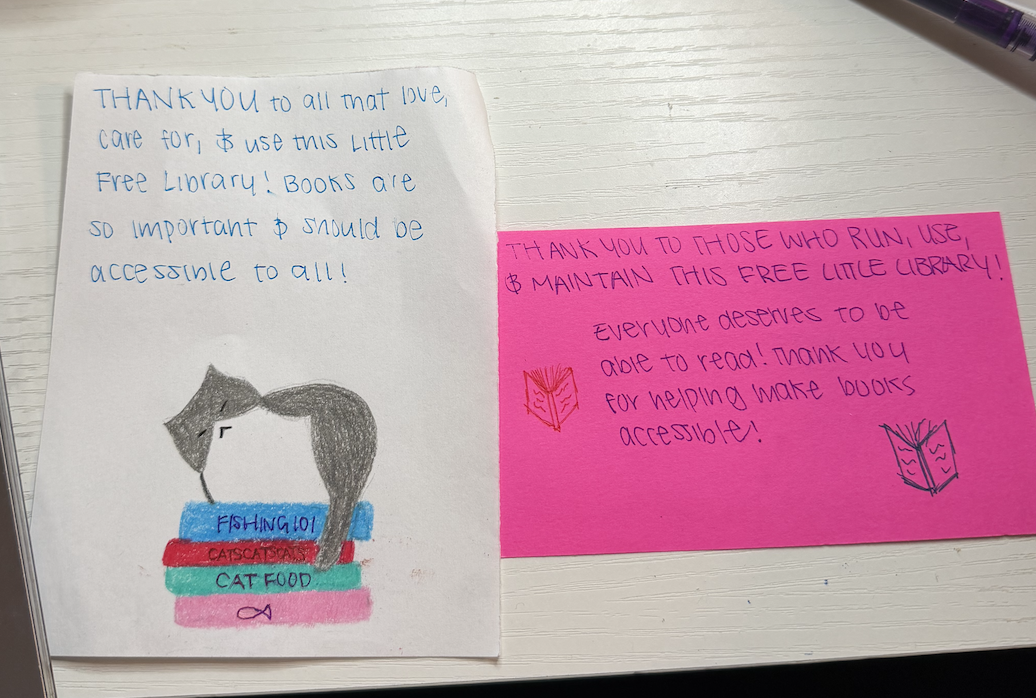 THANK YOU to all that love,
care for, & use this Little
Free Library! Books are
so important & should be
accessible to all!
FISHING 101
CATSCATSCATS
CAT FOOD
THANK YOU TO THOSE WHO RUN, USE,
& MAINTAIN THIS FREE LITTLE LIBRARY!
Everyone deserves to be
able to read! Thank you
for helping make books
accessible!